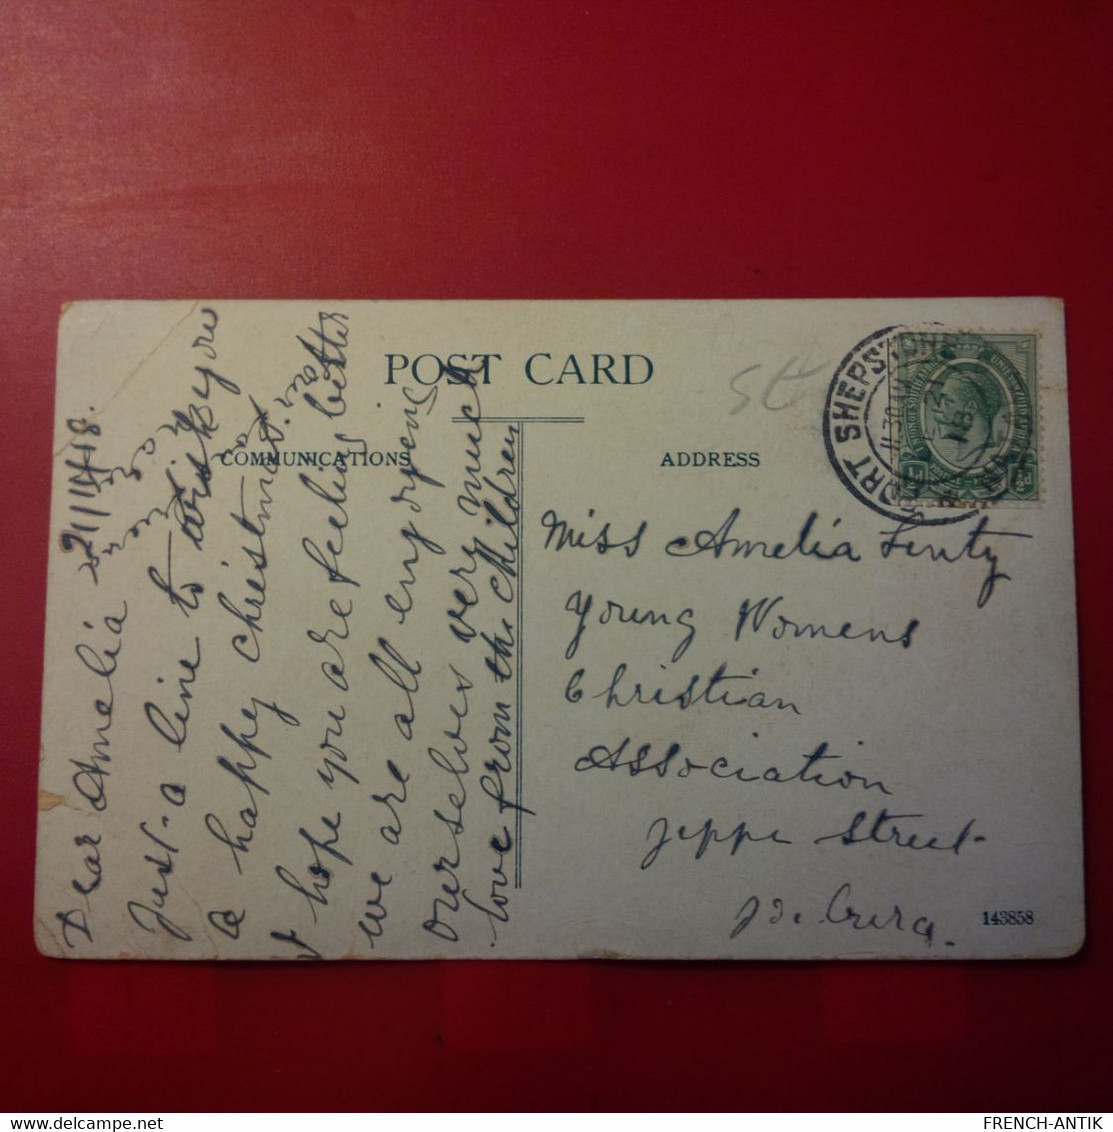 POST CARD
COMMUNICATIONS
ADDRESS
21/12/18.
Dear Amelia
Just a line to wish you
a happy christmas.
I hope you are feeling better
we are all enjoyeng
ourselves very much
love from the children
PORT SHEPSTONE
½d
Miss Amelia
Young Womens
Christian
Association
Jeppe Street
143858
St
FRENCH-ANTIK